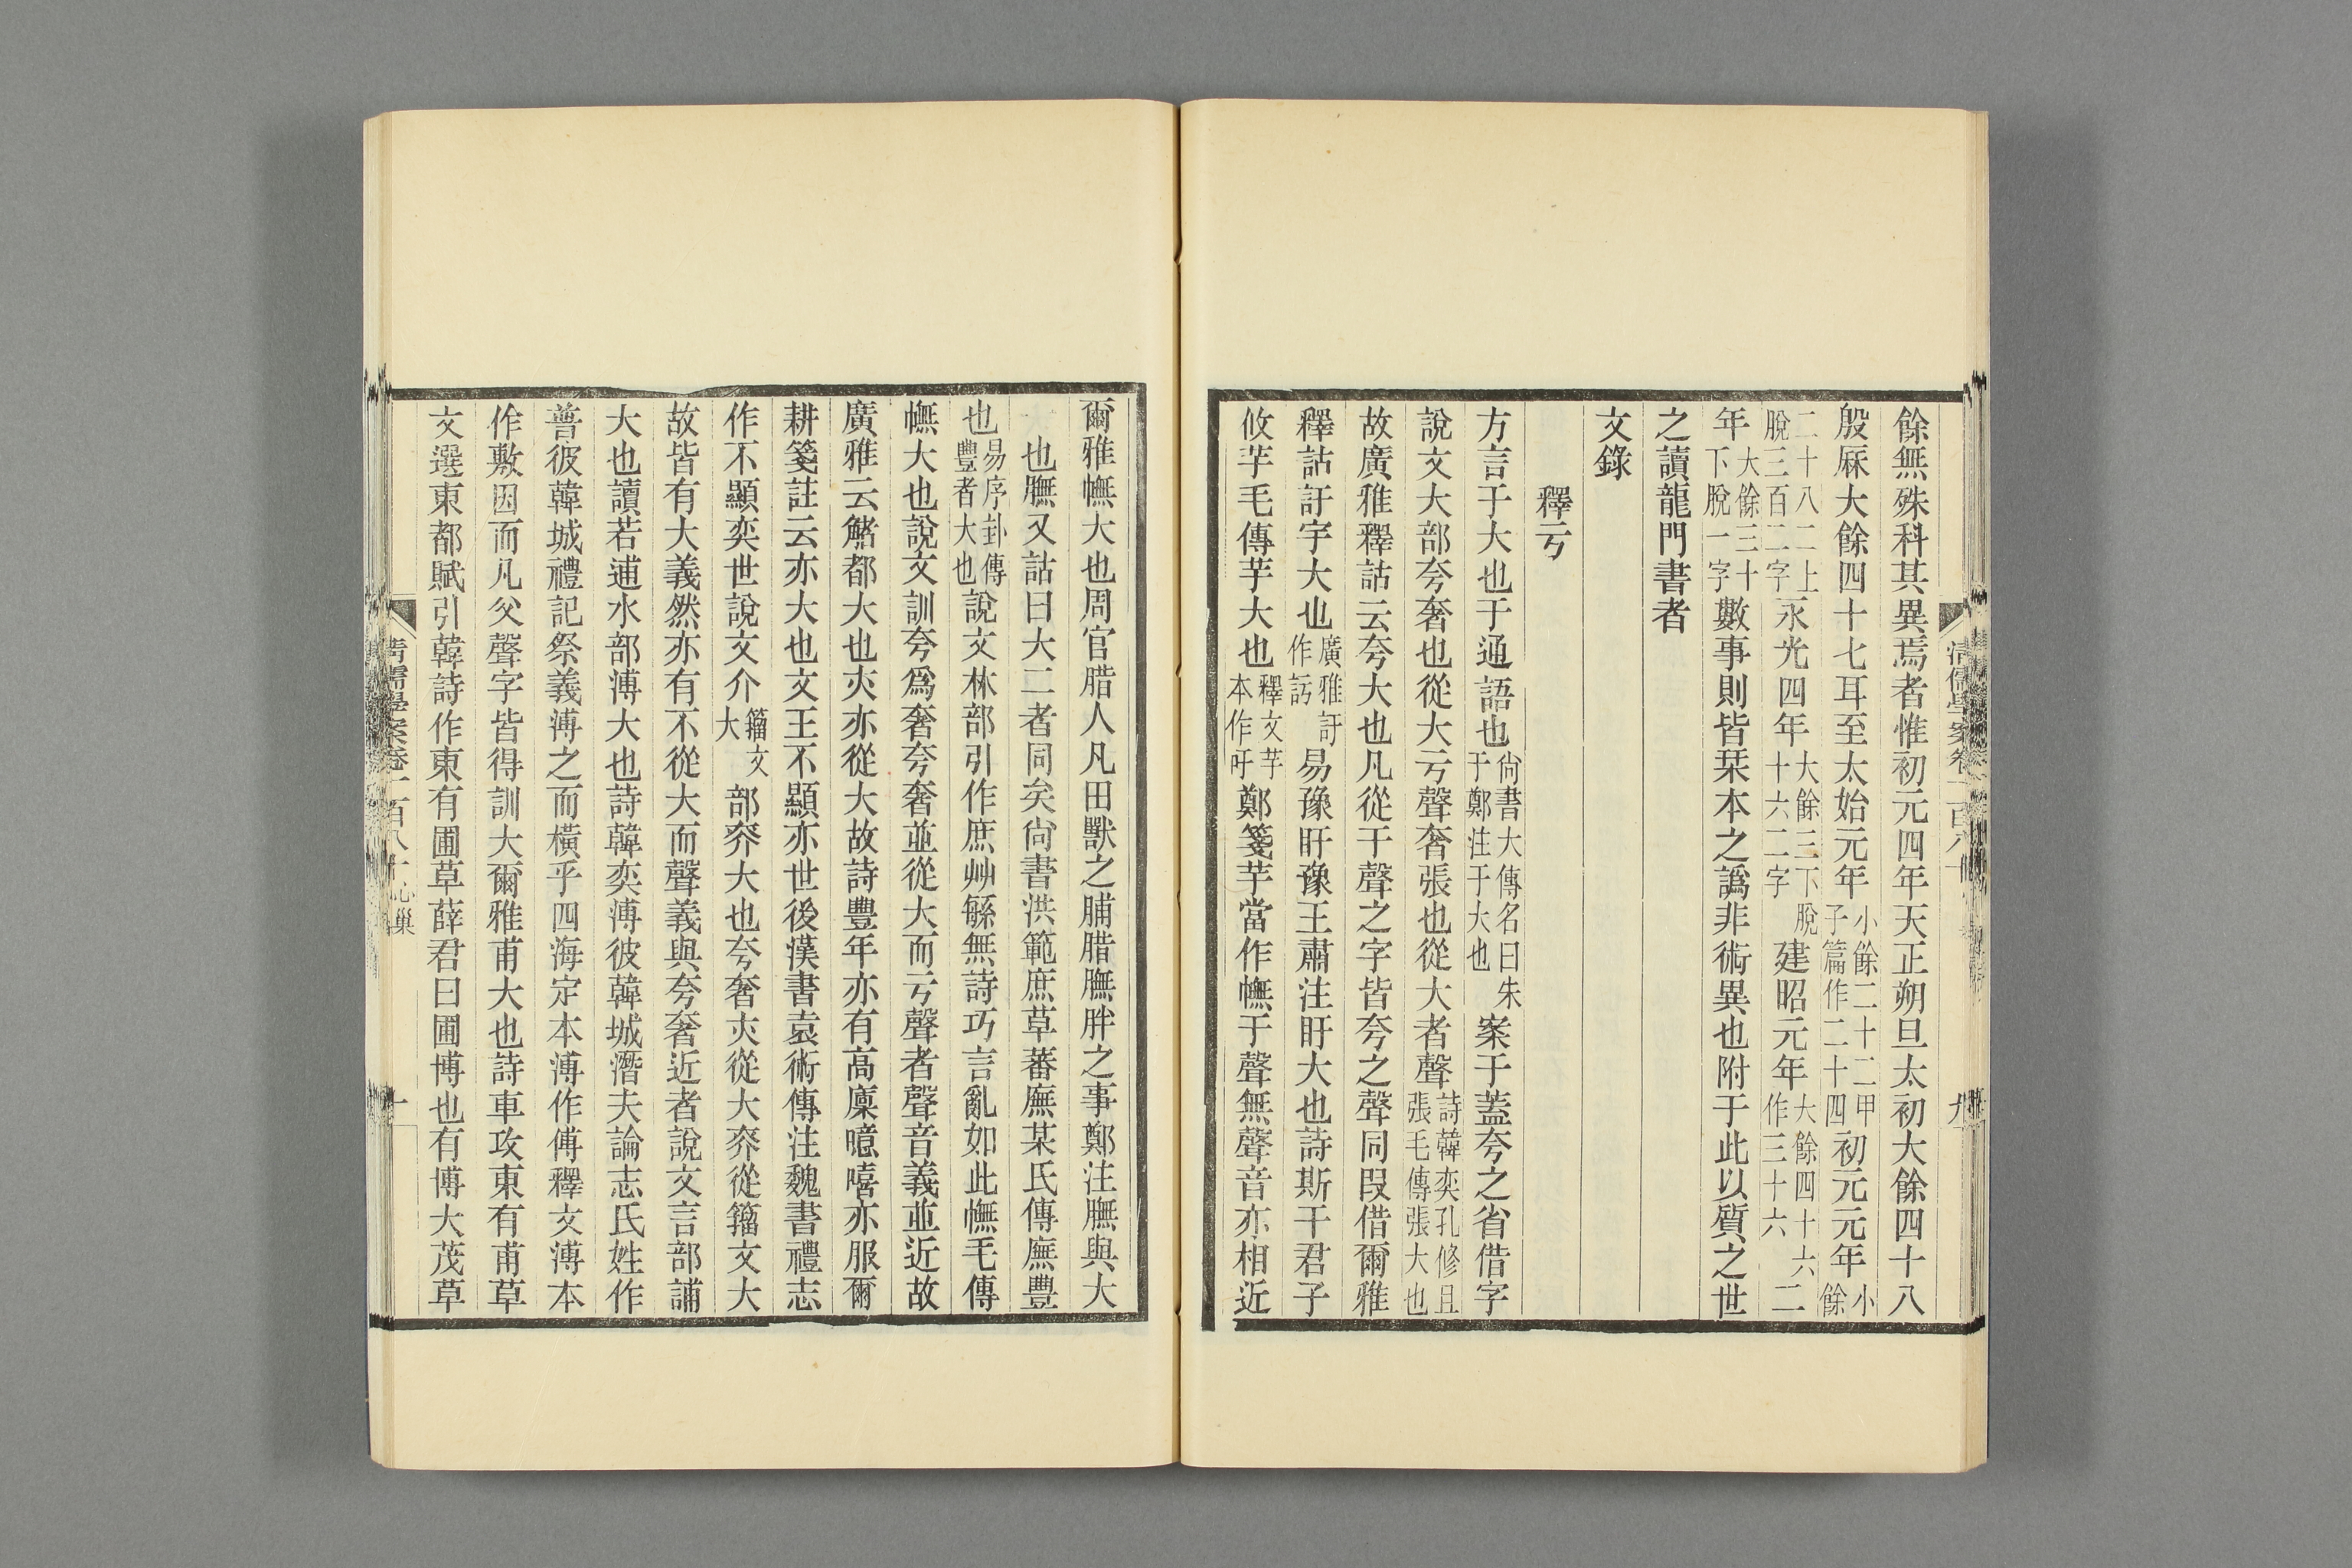 餘無殊科其異焉者惟初元四年天正朔旦太初大餘四十八
殷厤大餘四十七耳至太始元年小餘二十二甲子篇作二十四初元元年小餘
二十八二上脫三百二字永光四年大餘三下脫十六二字建昭元年大餘四十六二作三十六
年大餘三十下脫一字數事則皆栞本之譌非術異也附于此以質之世
之讀龍門書者
文錄
釋亏
方言于大也于通語也尙書大傳名曰朱于鄭注于大也案于蓋夸之省借字
說文大部夸奢也從大亏聲奢張也從大者聲詩韓奕孔修且張毛傳張大也
故廣雅釋詁云夸大也凡從于聲之字皆夸之聲同叚借爾雅
釋詁訏宇大也廣雅訏作訝易豫盱豫王肅注盱大也詩斯干君子
攸芋毛傳芋大也釋文芋本作吁鄭箋芋當作幠于聲無聲音亦相近
爾雅幠大也周官腊人凡田獸之脯腊膴胖之事鄭注膴與大
也膴又詁曰大二者同矣尙書洪範庶草蕃廡某氏傳廡豐
也易序卦傳豐者大也說文林部引作庶艸緐無詩巧言亂如此幠毛傳
幠大也說文訓夸爲奢夸奢並從大而亏聲者聲音義並近故
廣雅云觰都大也夾亦從大故詩豐年亦有高廩噫嘻亦服爾
耕箋註云亦大也文王不顯亦世後漢書袁術傳注魏書禮志
作不顯奕世說文介籒文大部奕大也夸奢夾從大奕從籒文大
故皆有大義然亦有不從大而聲義與夸奢近者說文言部誧
大也讀若逋水部溥大也詩韓奕溥彼韓城潛夫論志氏姓作
普彼韓城禮記祭義溥之而橫乎四海定本溥作傅釋文溥本
作敷因而凡父聲字皆得訓大爾雅甫大也詩車攻東有甫草
文選東都賦引韓詩作東有圃草薛君曰圃博也有博大茂草